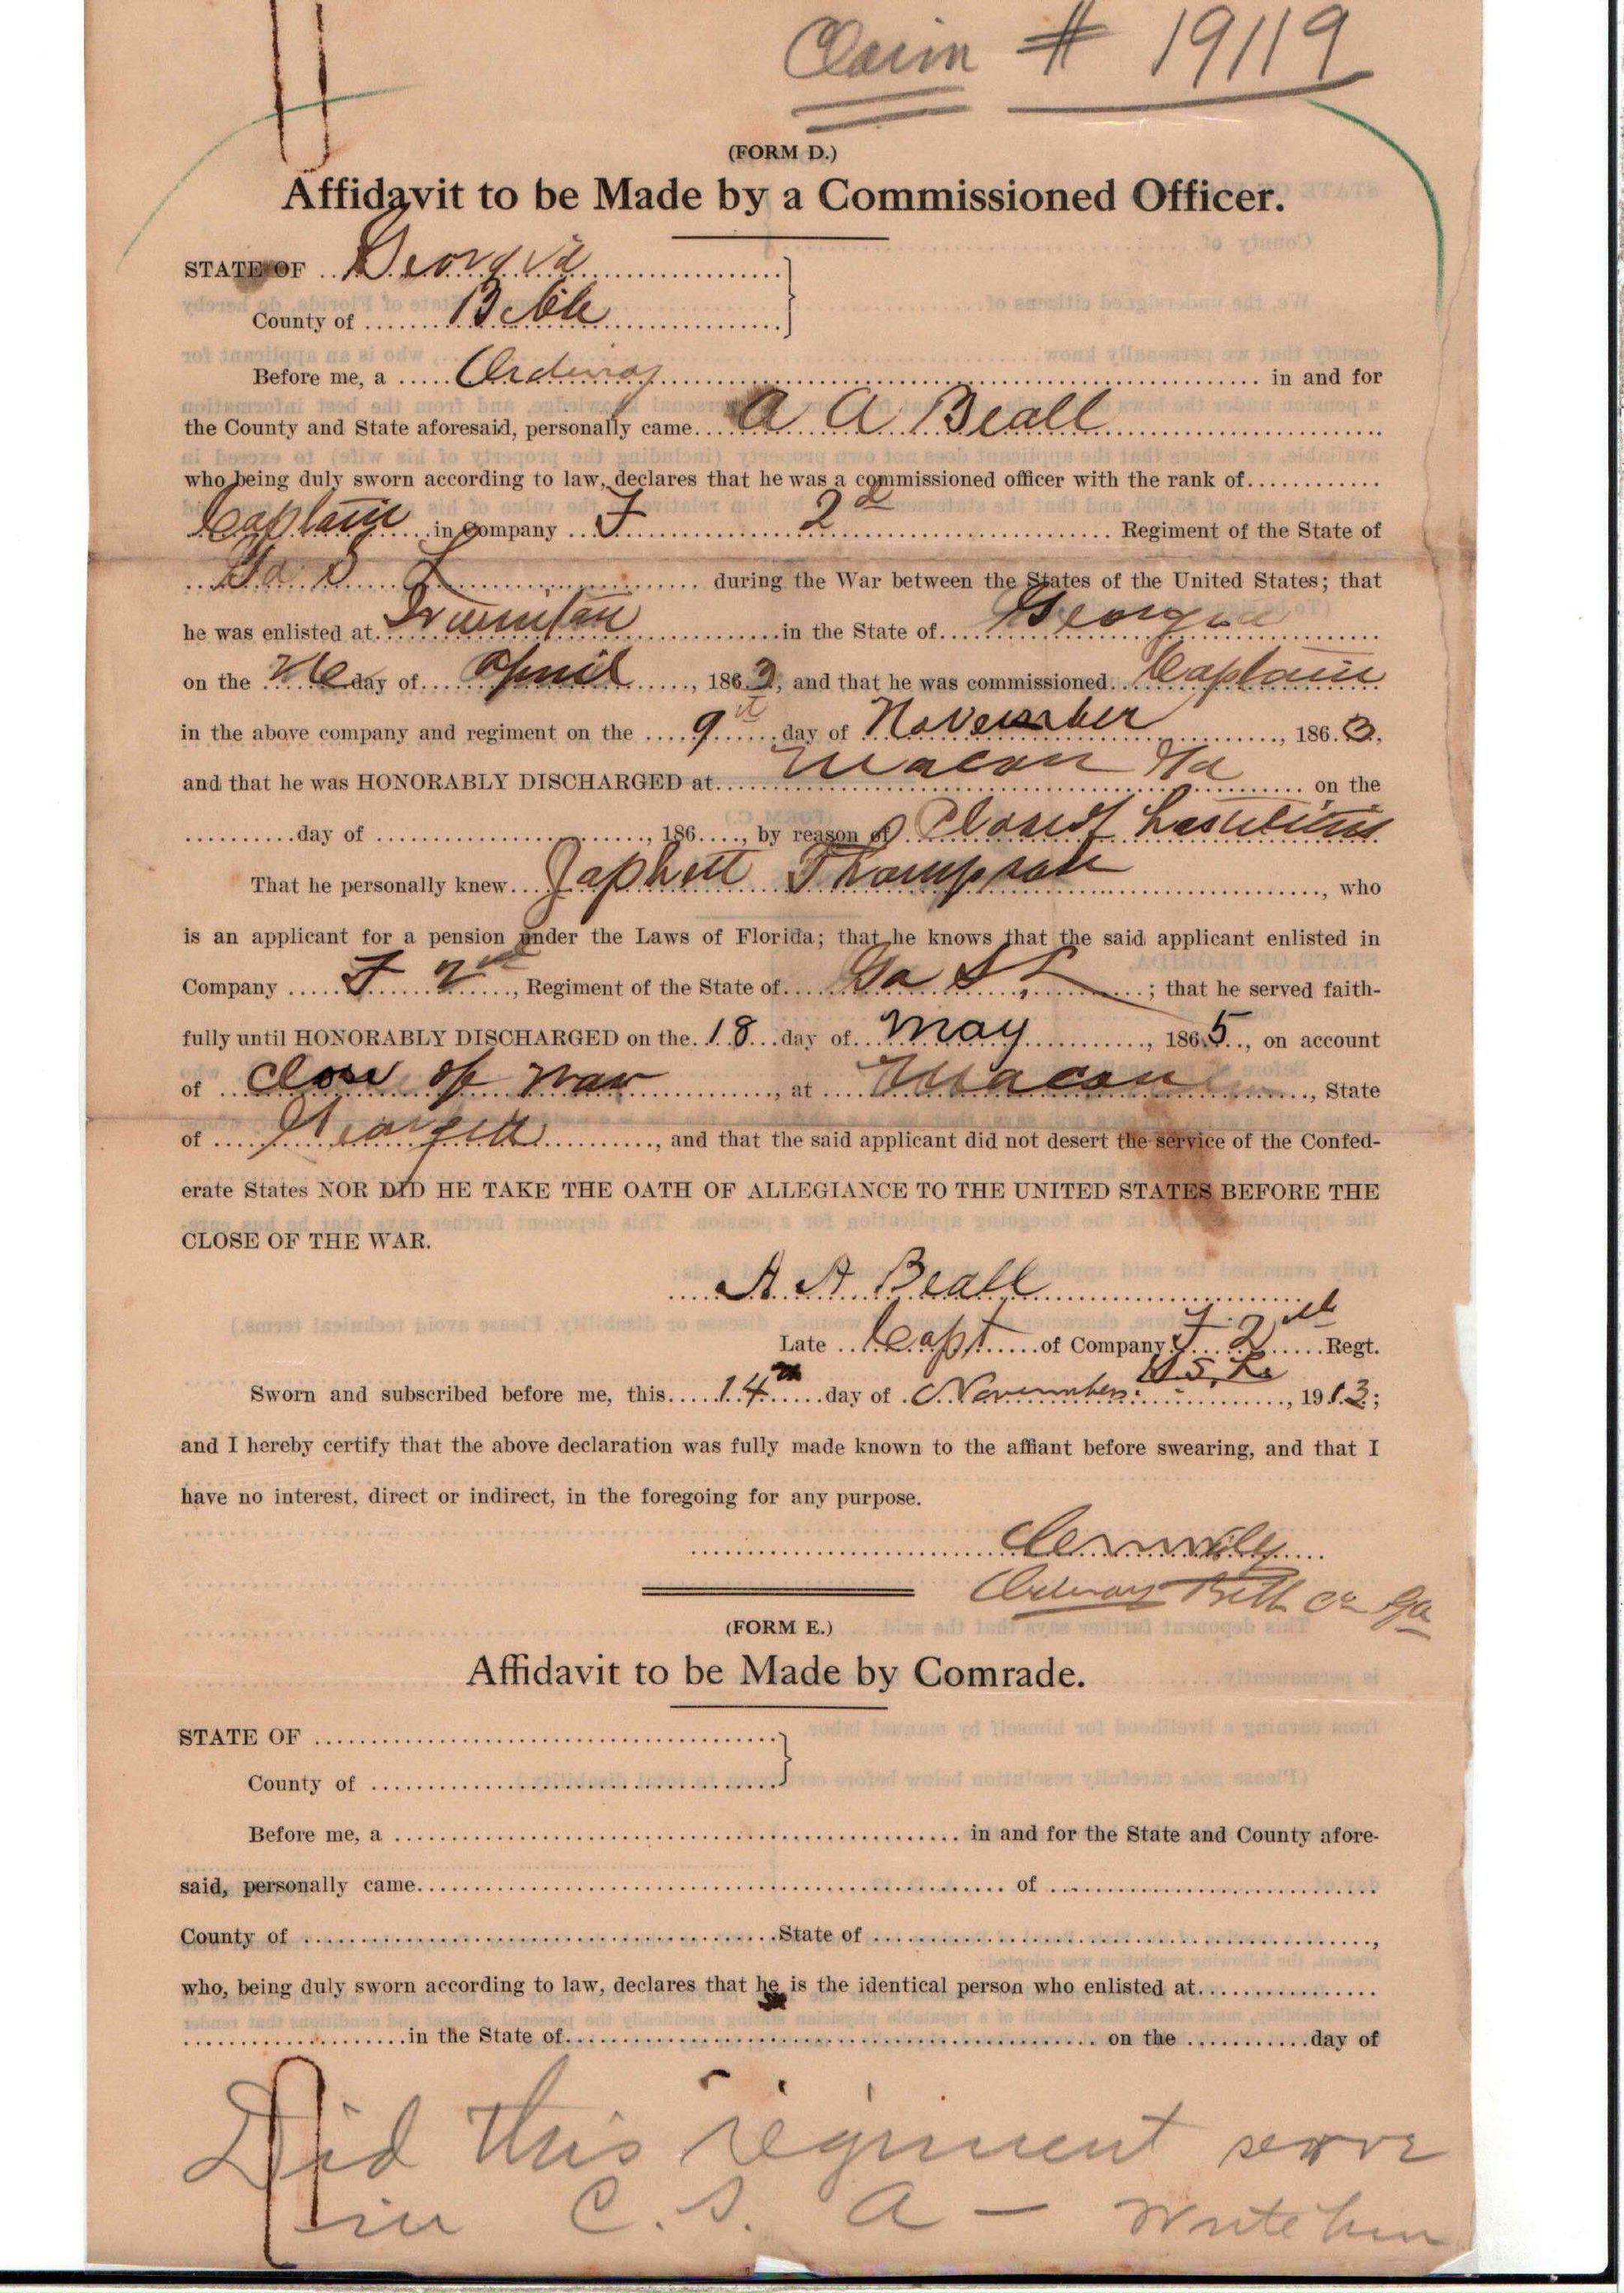 Claim # 19119
(FORM D.)
Affidavit to be Made by a Commissioned Officer.
STATE OF Georgia
County of Bibb
Before me, a Ordinary in and for
the County and State aforesaid, personally came A A Beall
who being duly sworn according to law, declares that he was a commissioned officer with the rank of
Captain in Company F 2d Regiment of the State of
Ga S L during the War between the States of the United States; that
he was enlisted at in the State of Georgia
on the day of April , 186 , and that he was commissioned Captain
in the above company and regiment on the 9th day of November , 1863,
and that he was HONORABLY DISCHARGED at Macon Ga on the
day of , 186 , by reason of Close of hostilities
That he personally knew Japhett Thompson , who
is an applicant for a pension under the Laws of Florida; that he knows that the said applicant enlisted in
Company F 2nd , Regiment of the State of Ga S L ; that he served faith-
fully until HONORABLY DISCHARGED on the 18 day of May , 1865 , on account
of close of war , at Macon , State
of Georgia , and that the said applicant did not desert the service of the Confed-
erate States NOR DID HE TAKE THE OATH OF ALLEGIANCE TO THE UNITED STATES BEFORE THE
CLOSE OF THE WAR.
A A Beall
Late Capt of Company F 2nd Regt.
Sworn and subscribed before me, this 14th day of November , 1913;
and I hereby certify that the above declaration was fully made known to the affiant before swearing, and that I
have no interest, direct or indirect, in the foregoing for any purpose.
Ordinary Bibb Co Ga
(FORM E.)
Affidavit to be Made by Comrade.
STATE OF
County of
Before me, a in and for the State and County afore-
said, personally came of
County of State of ,
who, being duly sworn according to law, declares that he is the identical person who enlisted at
in the State of on the day of
Did this regiment serve
in C. S. A - Write him